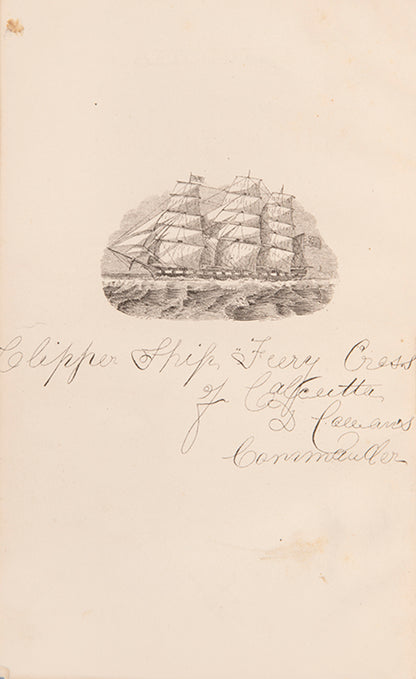 Clipper Ship "Fiery Cross
of Calcutta
D Cowans
Commander